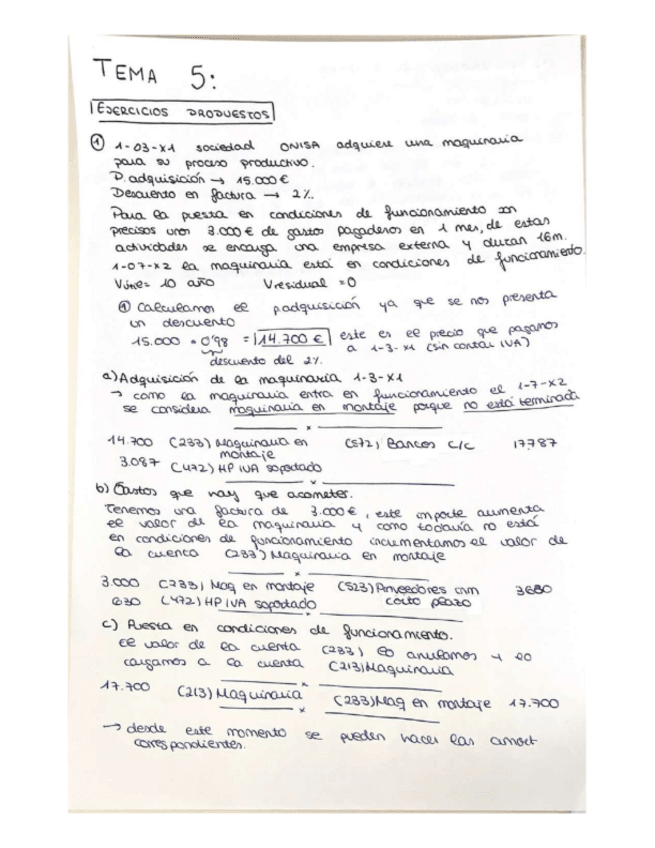 TEMA 5:
EJERCICIOS PROPUESTOS
① 1-03-X1 sociedad ONISA adquiere una maquinaria
para su proceso productivo.
P. adquisición → 15.000 €
Descuento en factura → 2%.
Para la puesta en condiciones de funcionamiento son
precisos unos 3.000 € de gastos pagaderos en 1 mes, de estas
actividades se encarga una empresa externa y duran 16m.
1-07-X2 la maquinaria está en condiciones de funcionamiento.
Vútil= 10 año Vresidual =0
① Calculamos el p.adquisición ya que se nos presenta
un descuento
15.000 · 0'98 = 14.700 € este es el precio que pagamos
a 1-3-X1 (sin contar IVA)
descuento del 2%.
a) Adquisición de la maquinaria 1-3-X1
→ como la maquinaria entra en funcionamiento el 1-7-X2
se considera maquinaria en montaje porque no está terminada
x
14.700 (233) Maquinaria en montaje (572) Bancos c/c 17787
3.087 (472) HP IVA soportado
x
b) Gastos que hay que acometer.
Tenemos una factura de 3.000 €, este importe aumenta
el valor de la maquinaria y como todavía no está
en condiciones de funcionamiento incrementamos el valor de
la cuenta (233) Maquinaria en montaje
x
3.000 (233) Maq en montaje (523) Proveedores inm corto plazo 3630
630 (472) HP IVA soportado
x
c) Puesta en condiciones de funcionamiento.
el valor de la cuenta (233) lo anulamos y lo
cargamos a la cuenta (213) Maquinaria
x
17.700 (213) Maquinaria (233) Maq en montaje 17.700
x
→ desde este momento se pueden hacer las amort
correspondientes.